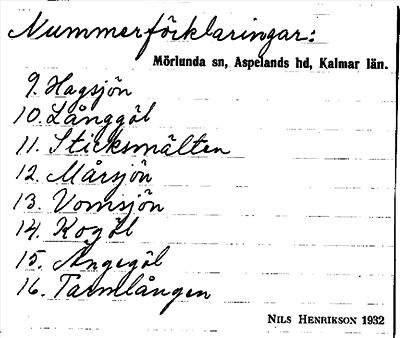 Nummerförklaringar:
Mörlunda sn, Aspelands hd, Kalmar län.
9. Hagsjön
10. Långgöl
11. Sticksmälten
12. Mårsjön
13. Vomsjön
14. Kogöl
15. Angegöl
16. Tarmlången
NILS HENRIKSON 1932